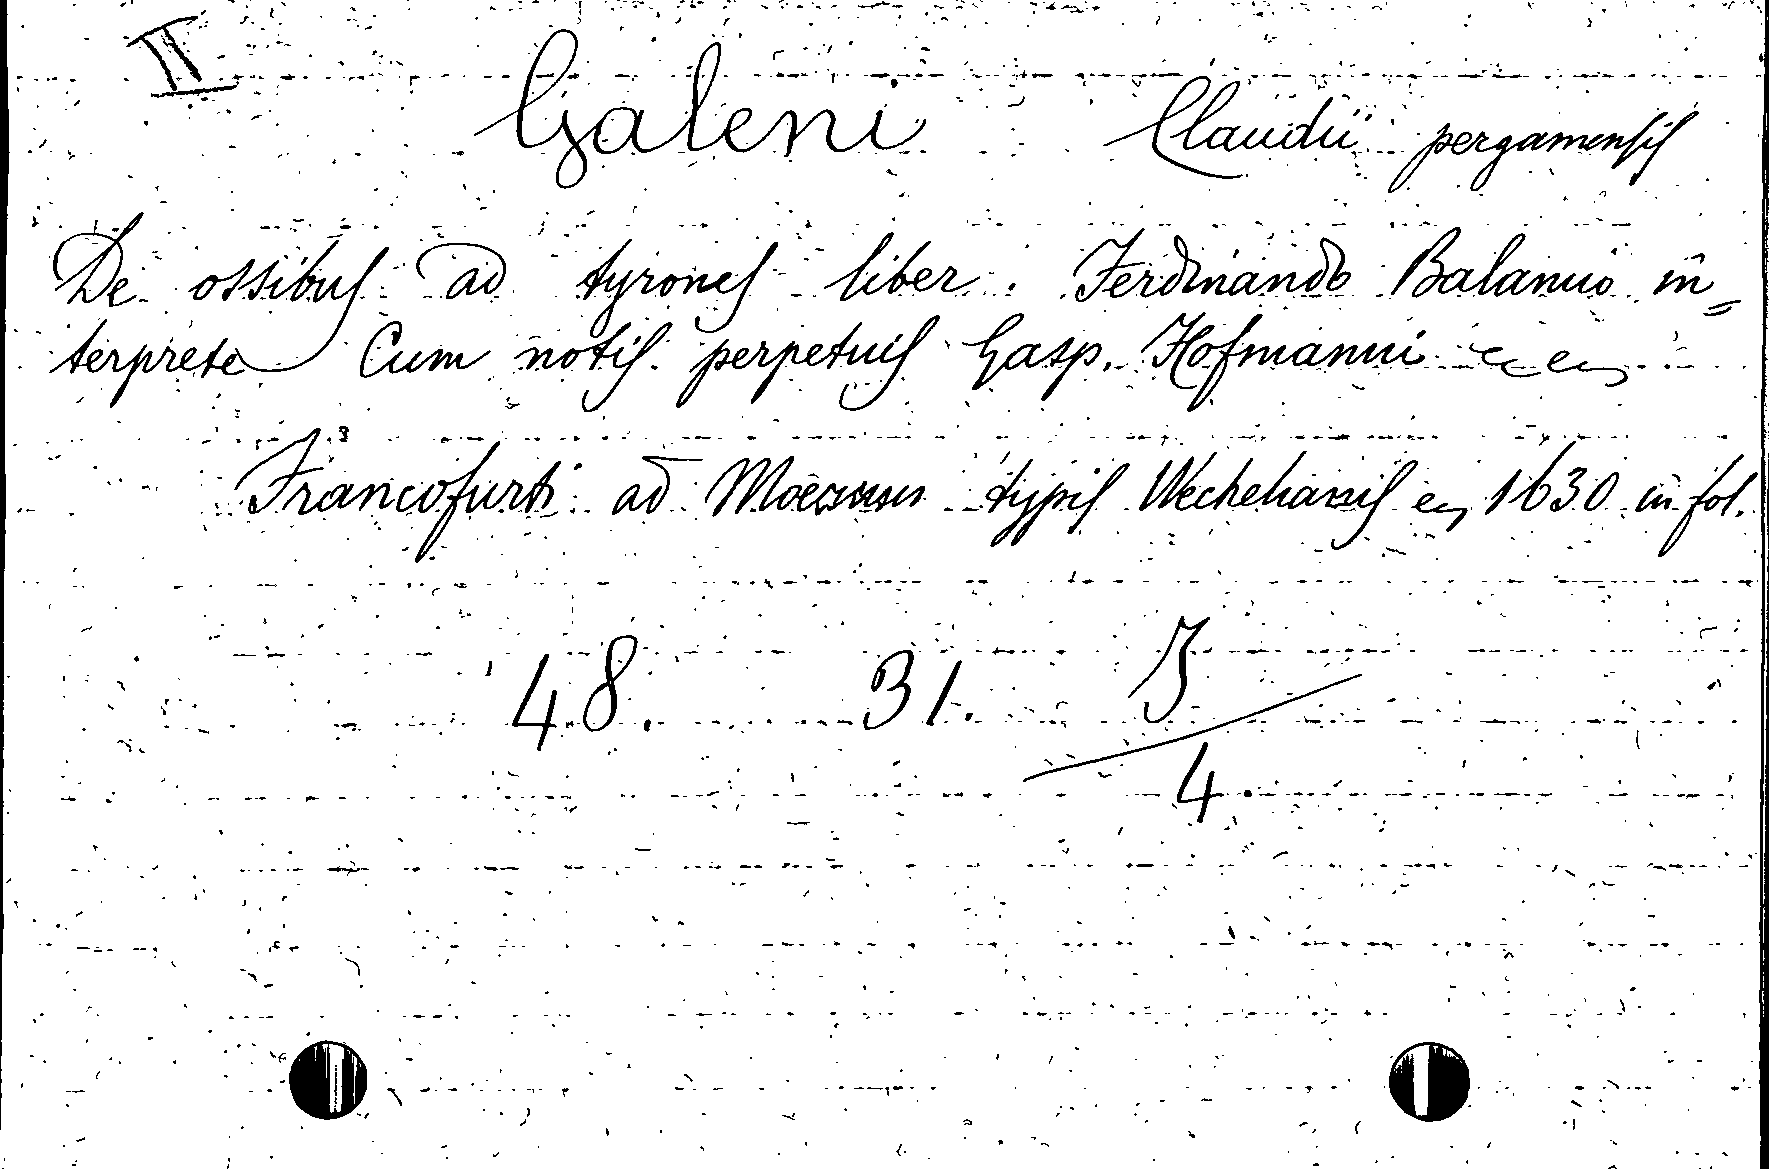 II
Galeni Claudii pergamensis
De ossibus ad tyrones liber. Ferdinando Balamio in=
terprete Cum notis perpetuis Gasp. Hofmanni
Francofurti ad Moenum typis Wechelianis 1630 in fol.
48. 31. J
4.